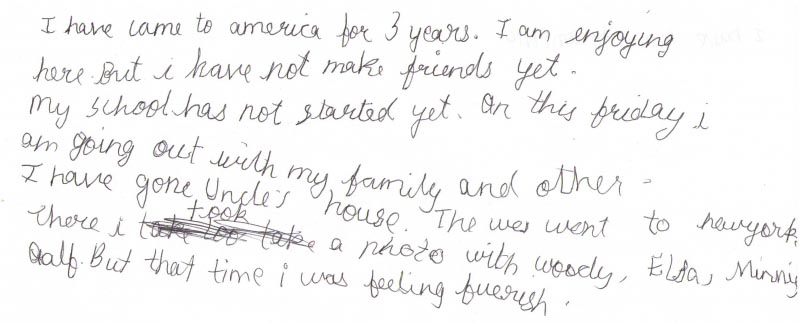 I have came to america for 3 years. I am enjoying
here. But i have not make friends yet.
My school has not started yet. On this friday i
am going out with my family and other.
I have gone Uncle's house. The wes went to newyork.
there i took a photo with woody, Elsa, Minniy
But that time i was feeling fuerish.